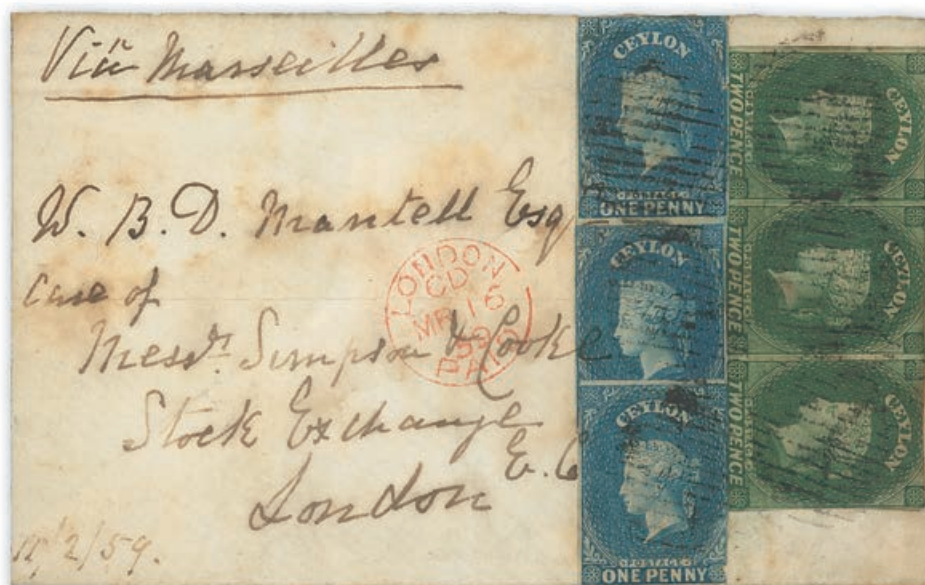 Via Marseilles
W. B. D. Mantell Esq
care of
Messrs. Simpson & Cooke
Stock Exchange
E. C
London
/2/59.
LONDON
CD
MR 16
59
PAID
CEYLON
POSTAGE
ONE PENNY
CEYLON
CEYLON
POSTAGE
ONE PENNY
CEYLON
POSTAGE
TWO PENCE
CEYLON
POSTAGE
TWO PENCE
CEYLON
POSTAGE
TWO PENCE